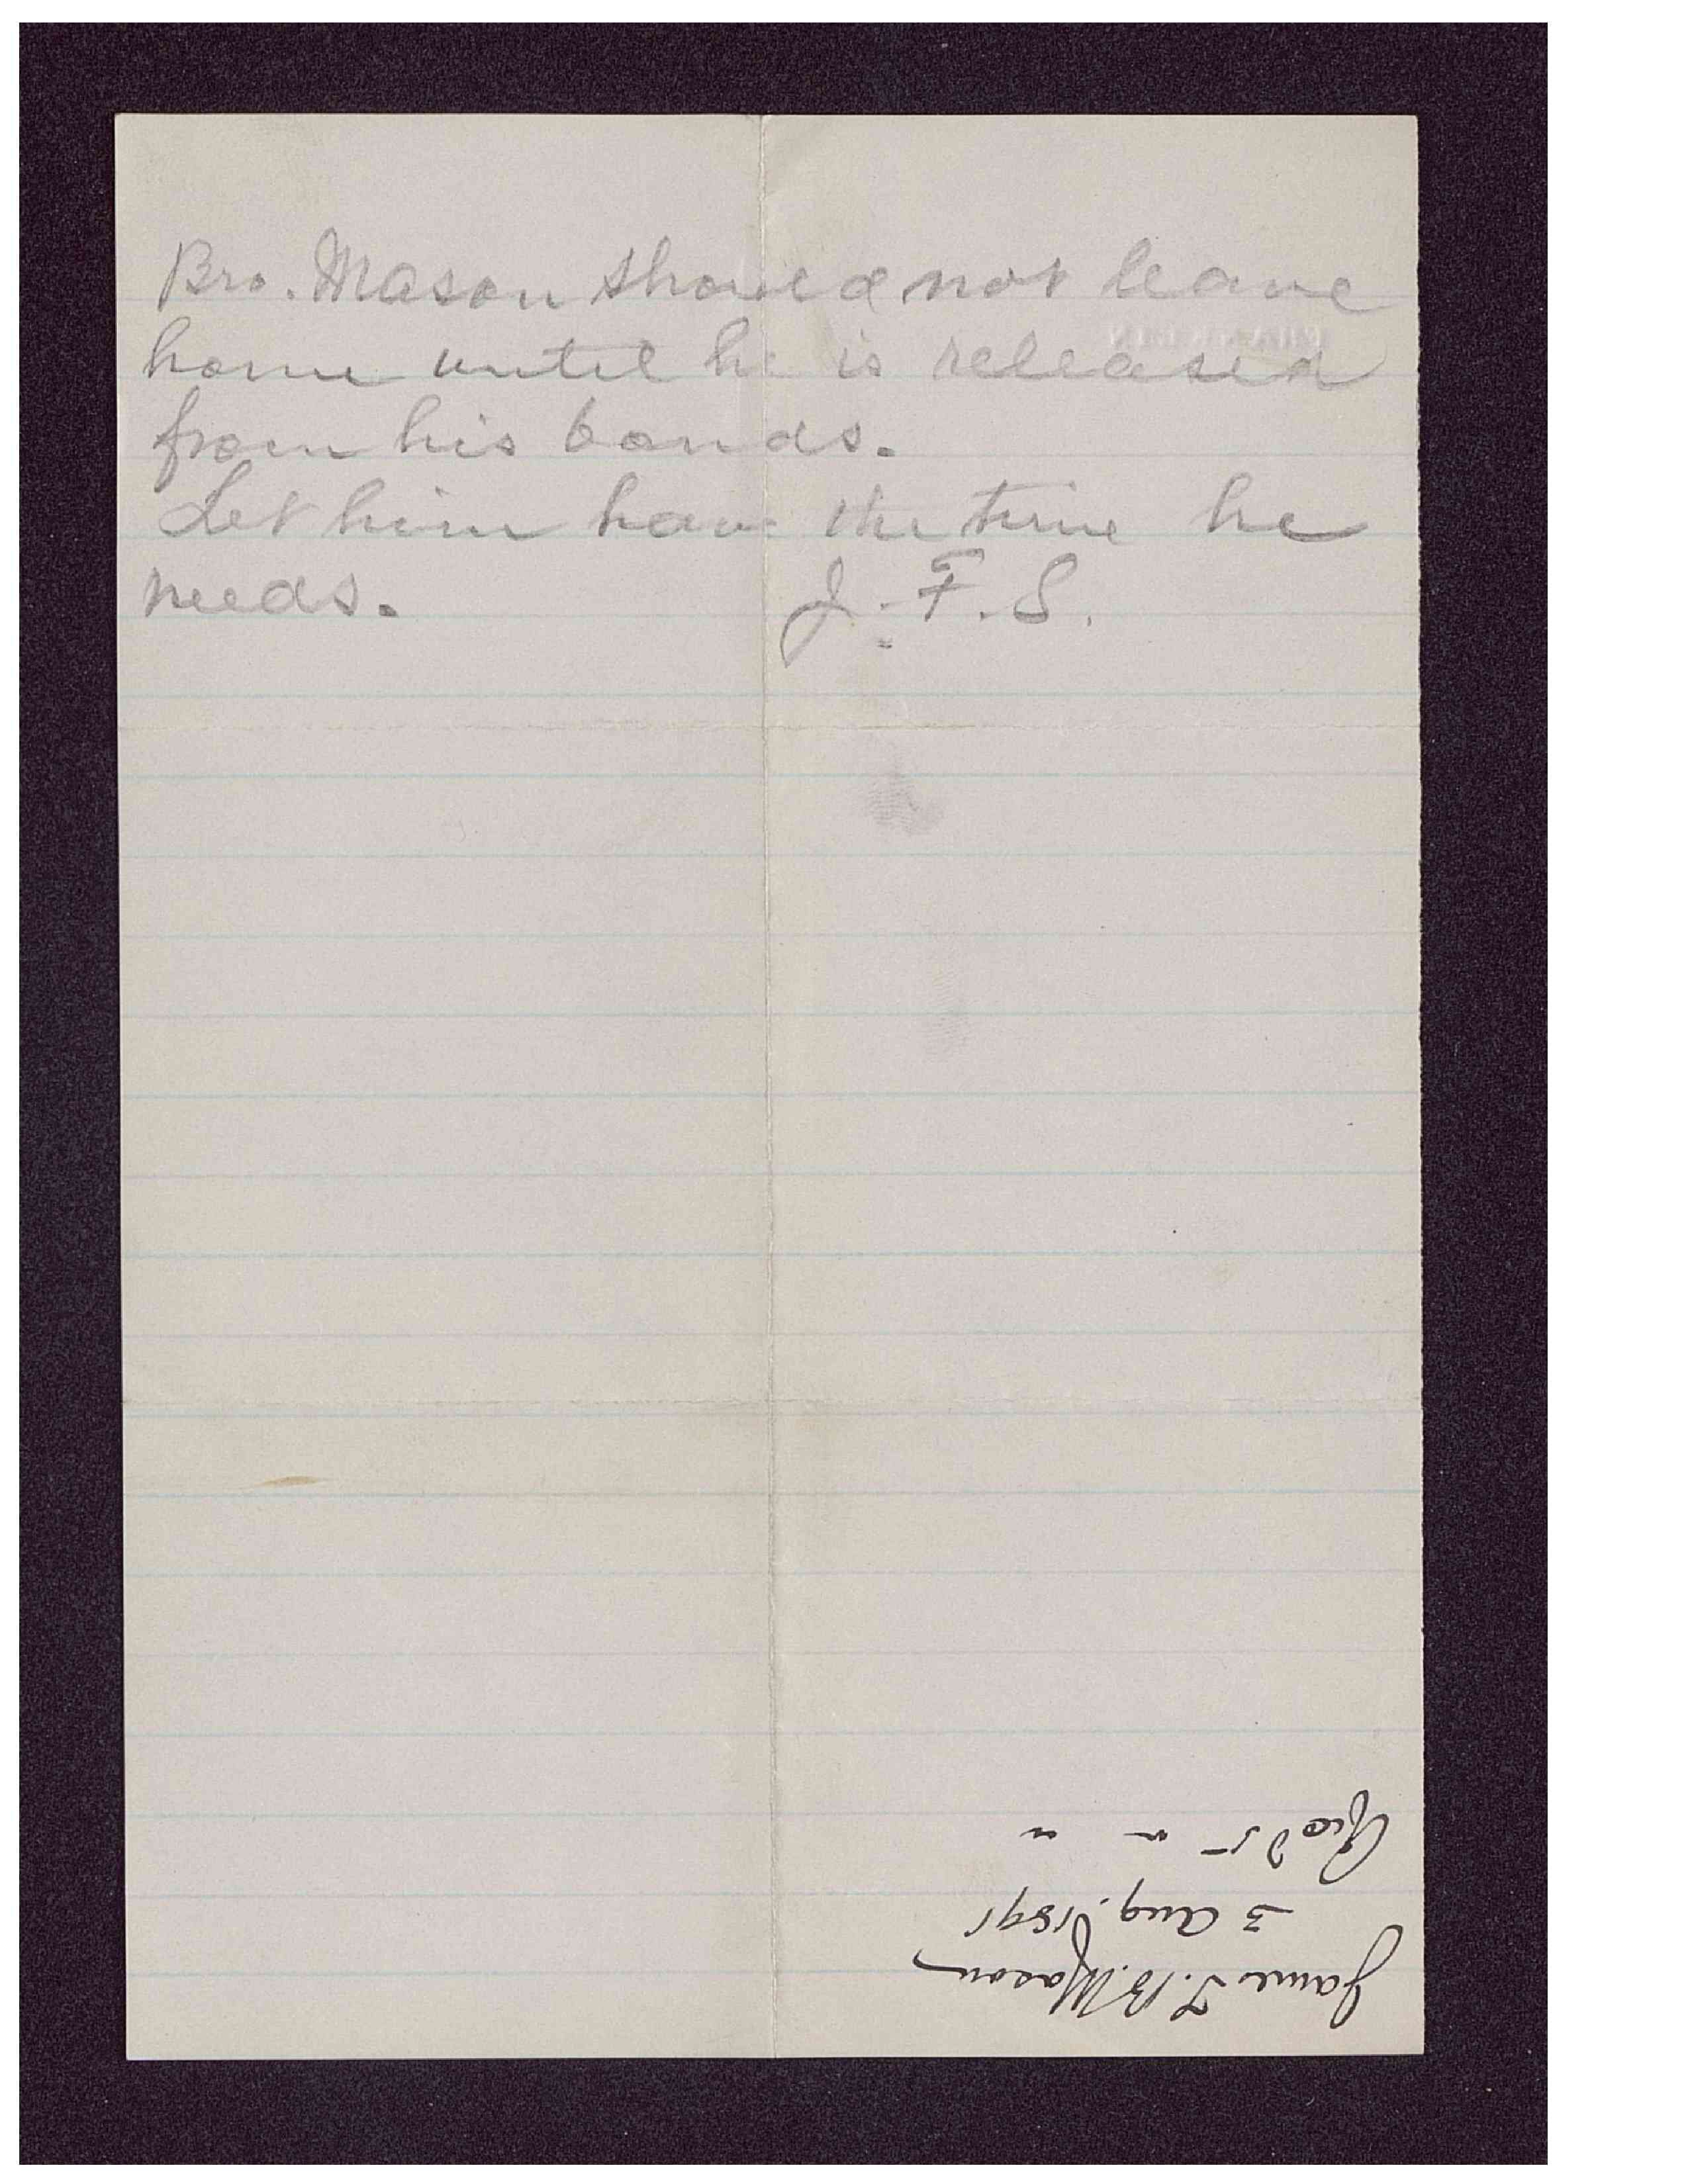 Bro. Mason should not leave
home until he is released
from his bonds.
Let him have the time he
needs. J. F. S.
James T. B. Mason
3 Aug. 1891
Recd 5 " "